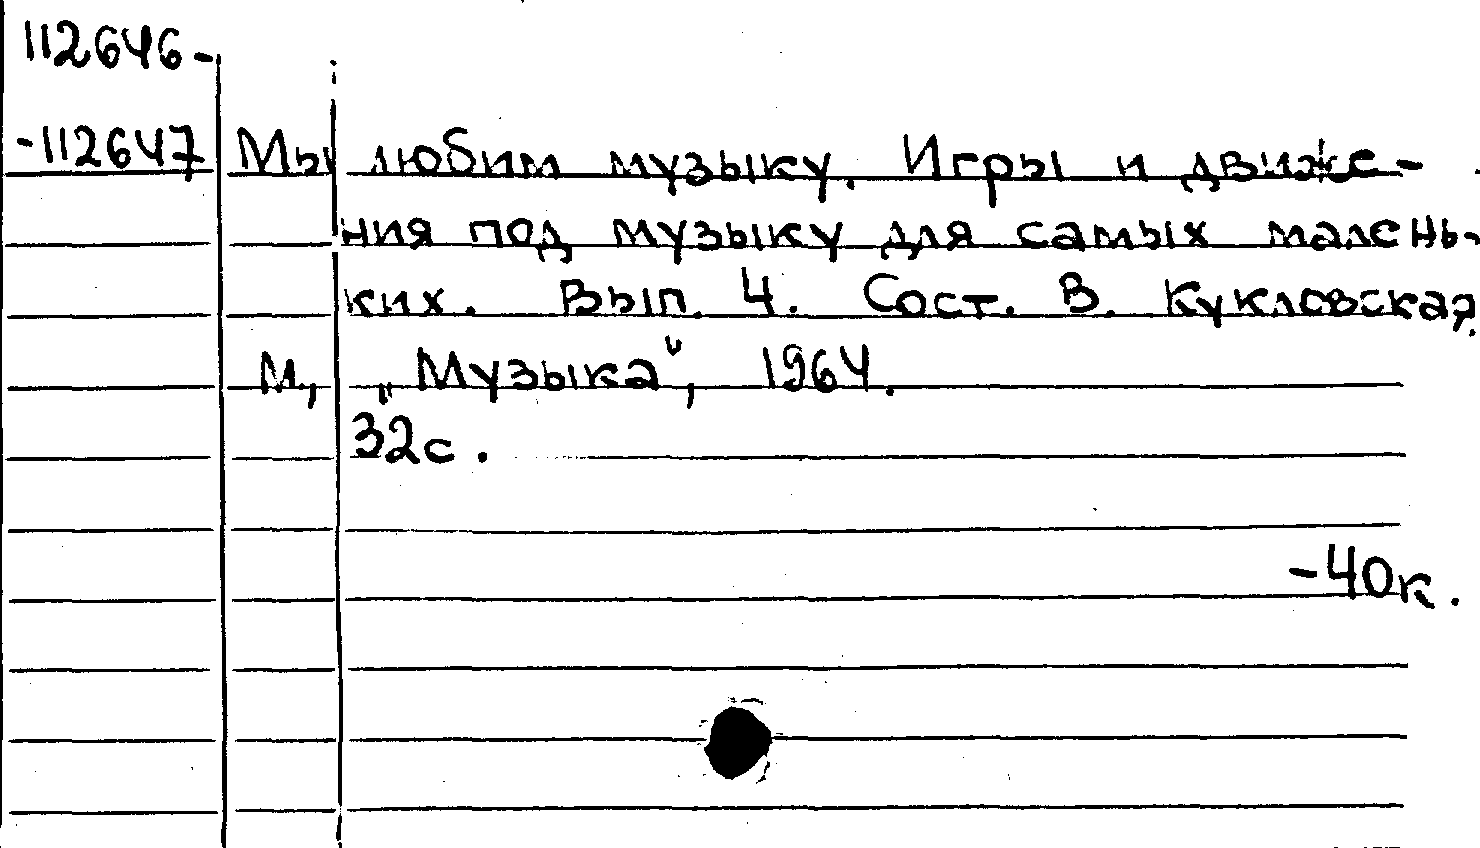 112646-
-112647 Мы любим музыку. Игры и движе-
ния под музыку для самых малень-
ких. Вып. 4. Сост. В. Кукловская.
М., „Музыка", 1964.
32с.
-40к.